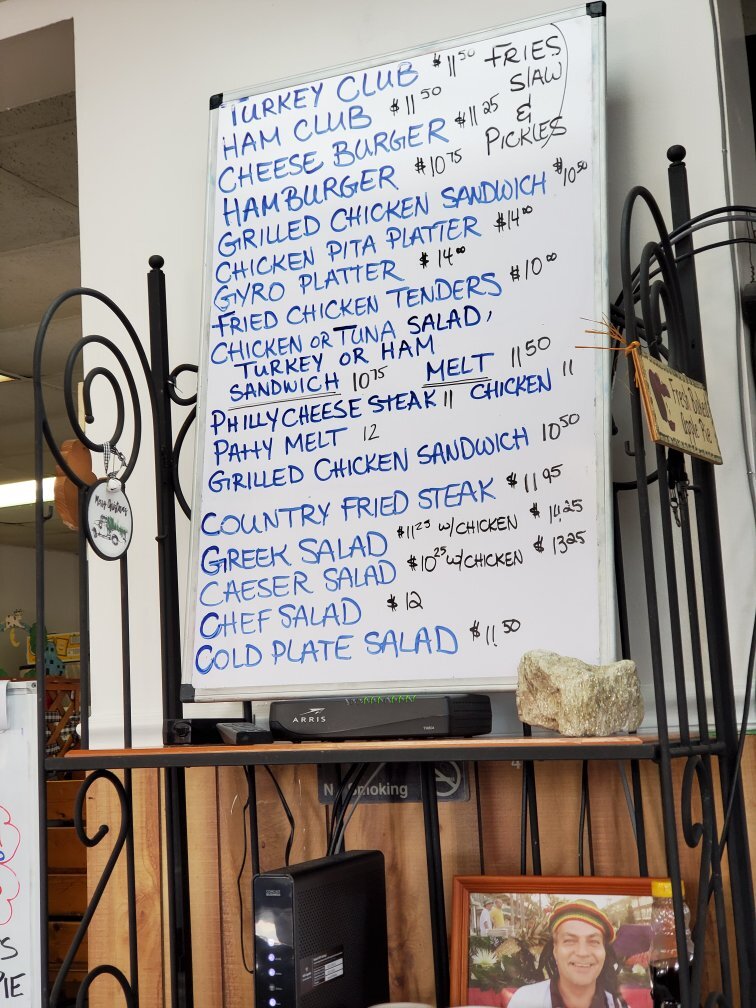 TURKEY CLUB $11 50 FRIES
HAM CLUB $11 50 SLAW
CHEESE BURGER $11 25 &
HAMBURGER $10 75 PICKLES
GRILLED CHICKEN SANDWICH $10 50
CHICKEN PITA PLATTER $14 00
GYRO PLATTER $14 00
FRIED CHICKEN TENDERS $10 00
CHICKEN OR TUNA SALAD,
TURKEY OR HAM
SANDWICH 10 75 MELT 11 50
PHILLY CHEESE STEAK 11 CHICKEN 11
PATTY MELT 12
GRILLED CHICKEN SANDWICH 10 50
COUNTRY FRIED STEAK $11.95
GREEK SALAD $11 25 W/CHICKEN $14.25
CAESER SALAD $10 25 W/CHICKEN $13 25
CHEF SALAD $12
COLD PLATE SALAD $11.50
Fresh Baked
Apple Pie
Merry Christmas
ARRIS
No Smoking
COMCAST
BUSINESS
S
PIE